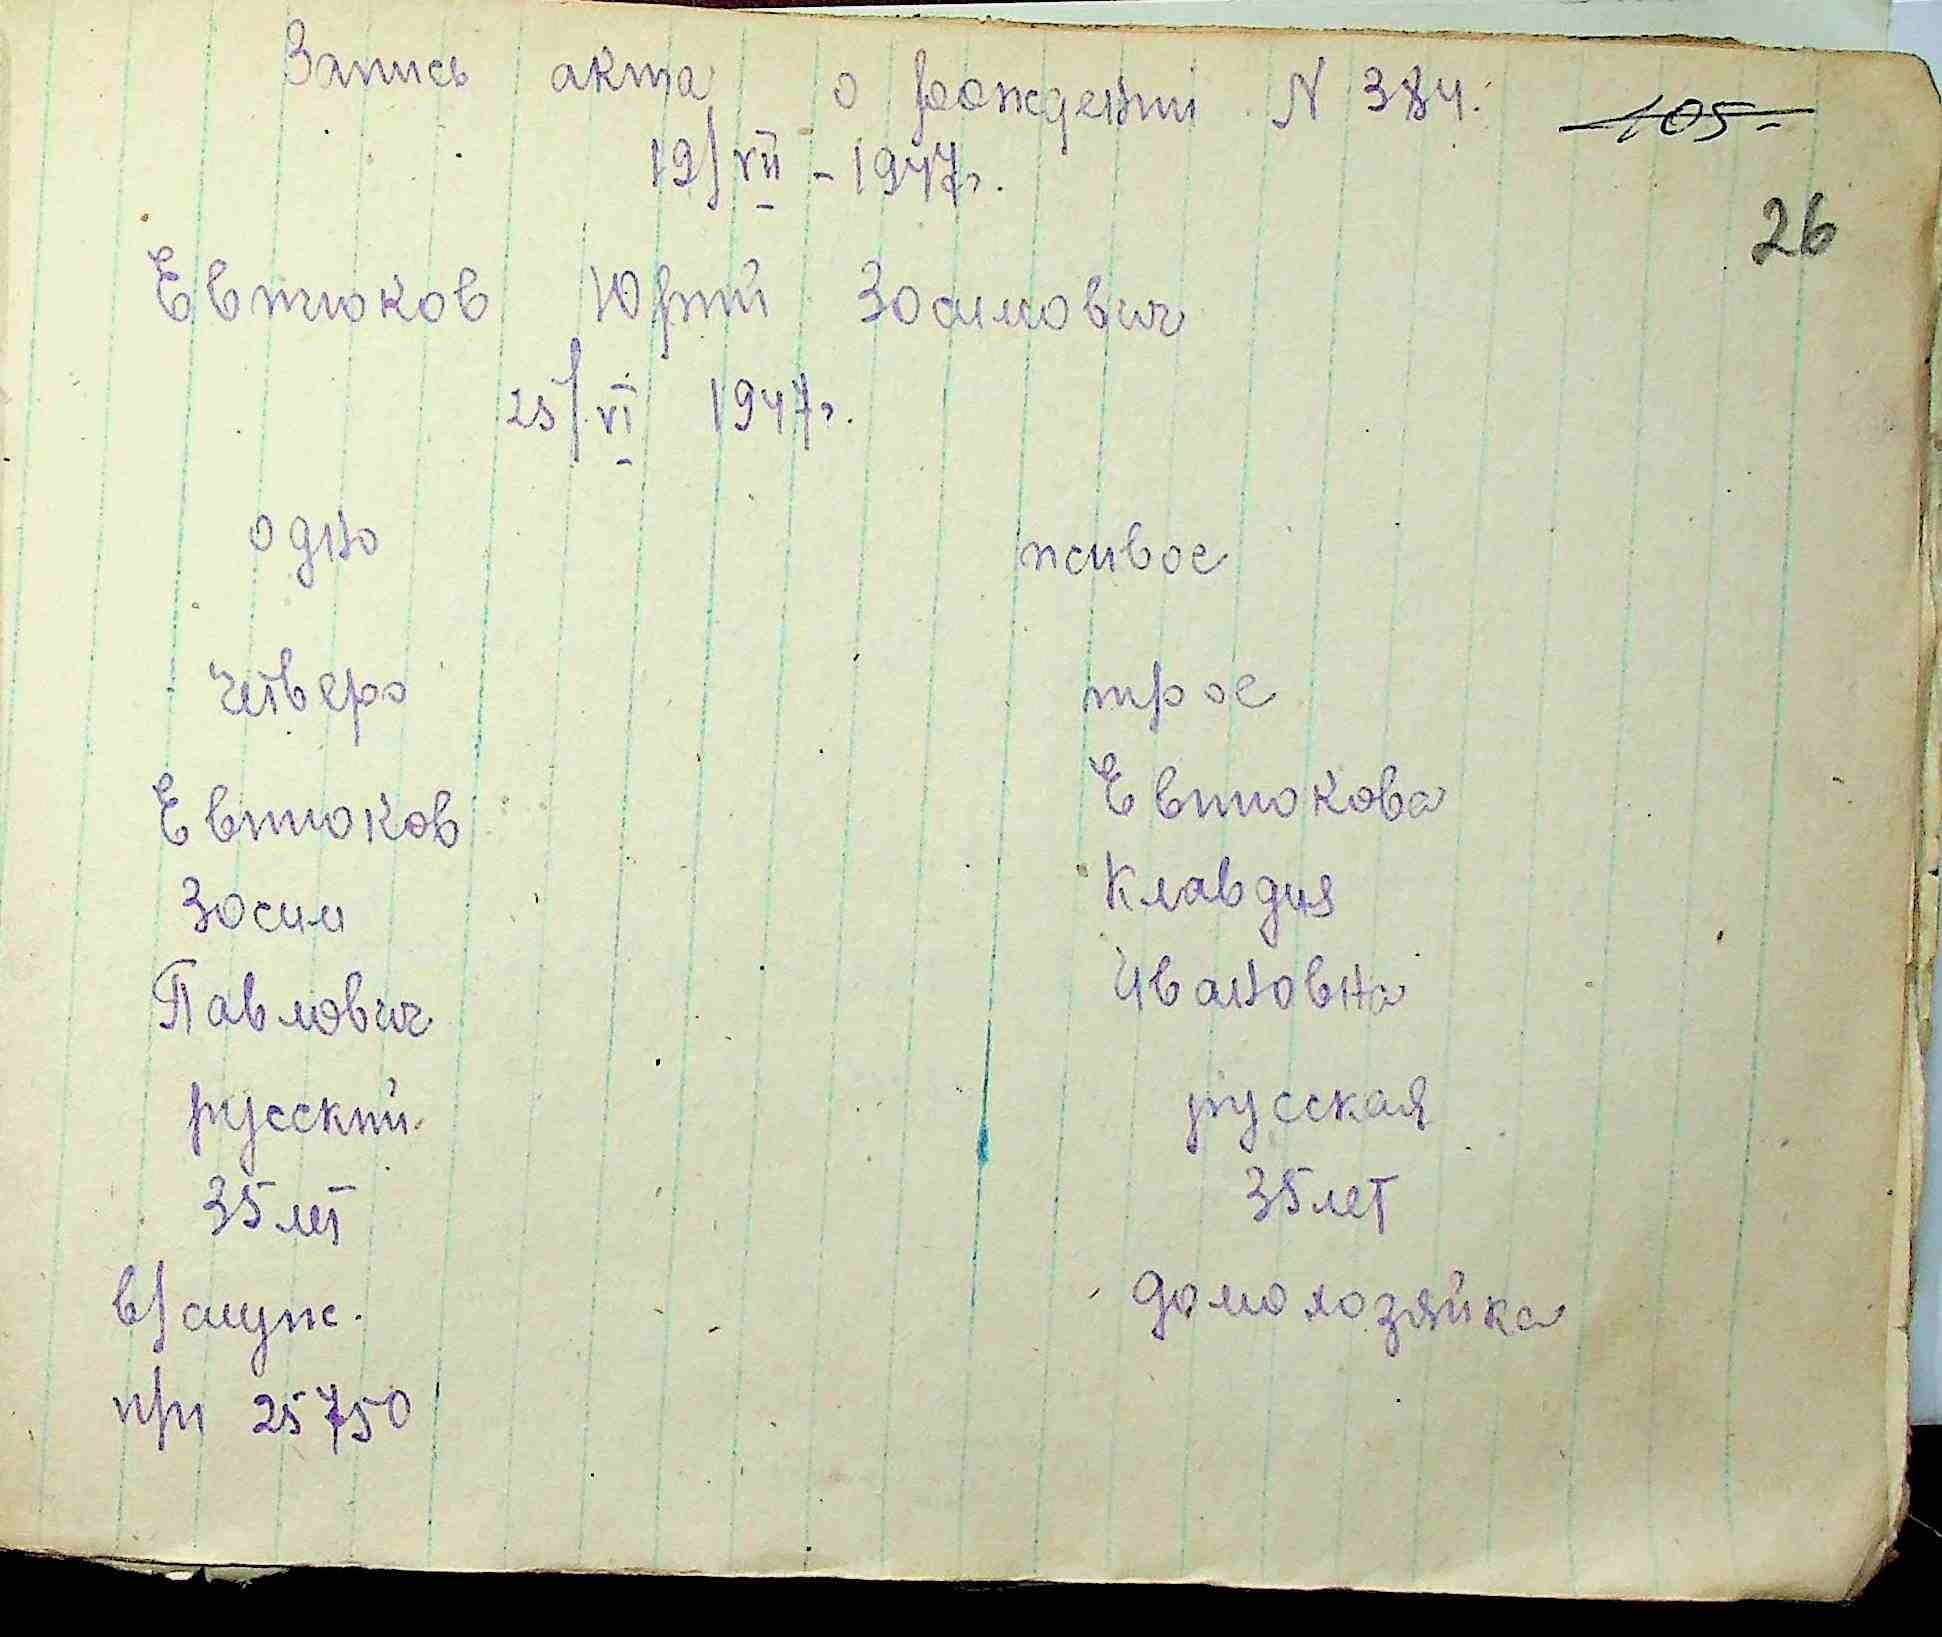 Запись акта о рождении N 384.
105-
19/VII - 1947г.
26
Евтюков Юрий Зосимович
25/VI 1947г.
одно живое
четверо трое
Евтюков Евтюкова
Зосим Клавдия
Павлович Ивановна
русский русская
35 лет 35 лет
в/служ. домохозяйка
при 25750